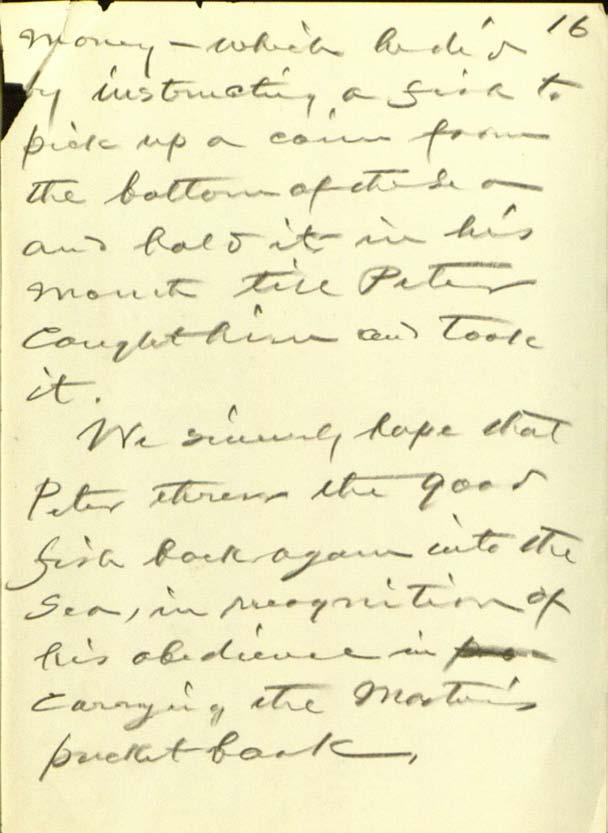 16
money — which he did
by instructing a fish to
pick up a coin from
the bottom of the sea
and hold it in his
mouth till Peter
caught him and took
it.
We sincerely hope that
Peter threw the good
fish back again into the
sea, in recognition of
his obedience in
carrying the Master's
pocket book.